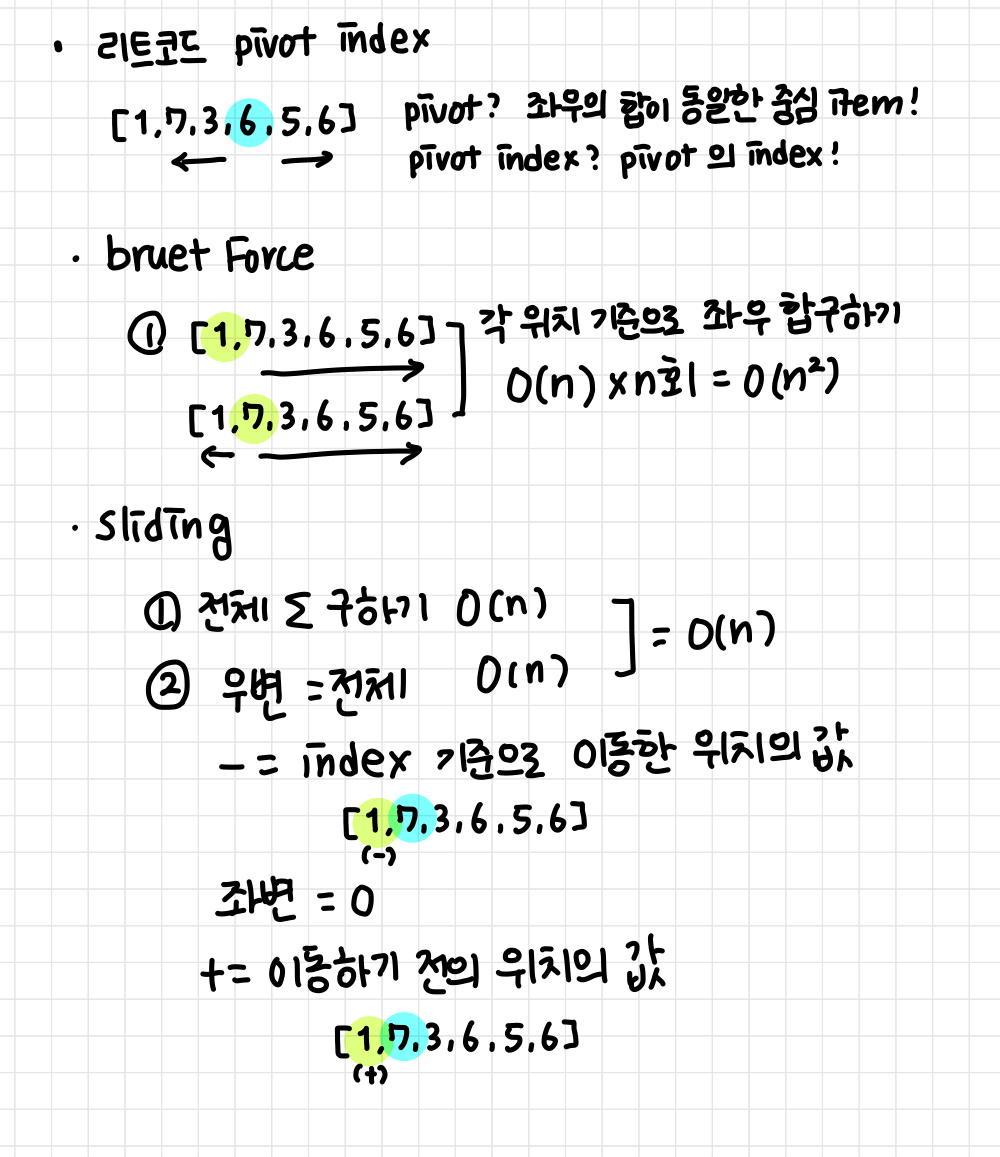 · 리트코드 pivot index
[1,7,3,6,5,6] pivot? 좌우의 합이 동일한 중심 item!
pivot index? pivot 의 index!
· bruet Force
① [1,7,3,6,5,6] 각 위치 기준으로 좌우 합구하기
O(n) x n회 = O(n²)
[1,7,3,6,5,6]
· Sliding
① 전체 Σ 구하기 O(n)
= O(n)
② 우변 = 전체 O(n)
-= index 기준으로 이동한 위치의 값
[1,7,3,6,5,6]
(-)
좌변 = 0
+= 이동하기 전의 위치의 값
[1,7,3,6,5,6]
(+)